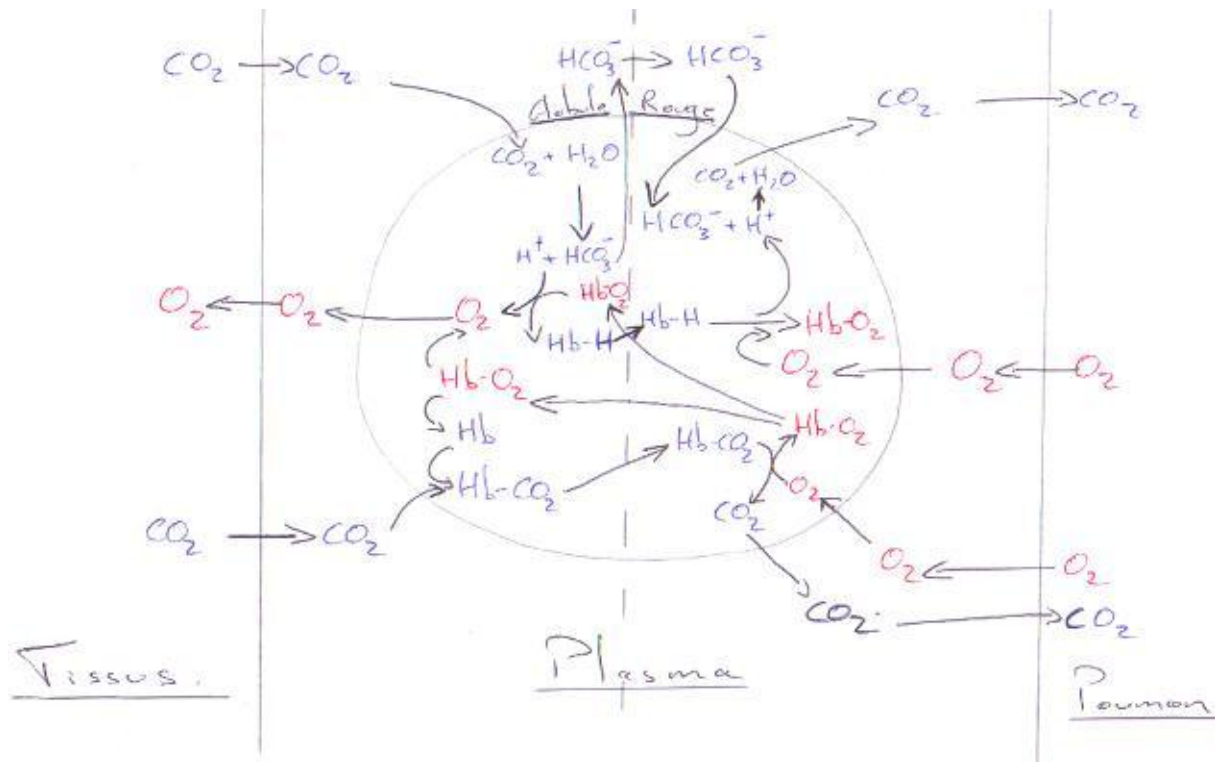 CO₂ → CO₂
HCO₃⁻ → HCO₃⁻
CO₂ → CO₂
Globule Rouge
CO₂ + H₂O
CO₂ + H₂O
HCO₃⁻ + H⁺
H⁺ + HCO₃⁻
HbO₂
O₂ ← O₂ ← O₂
Hb-H → Hb-H → Hb-O₂
O₂ ← O₂ ← O₂
Hb-O₂
Hb-O₂
Hb
Hb-CO₂
Hb-CO₂
O₂
CO₂ → CO₂
CO₂
O₂ ← O₂
CO₂ → CO₂
Tissus.
Plasma
Poumon